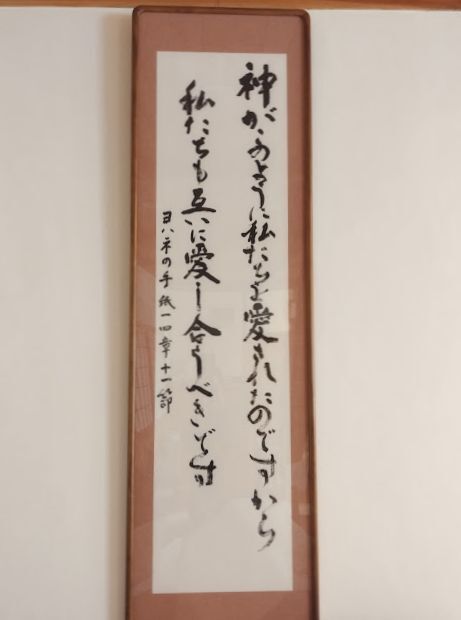 神がこのように私たちを愛されたのですから
私たちも互いに愛し合うべきです
ヨハネの手紙一四章十一節